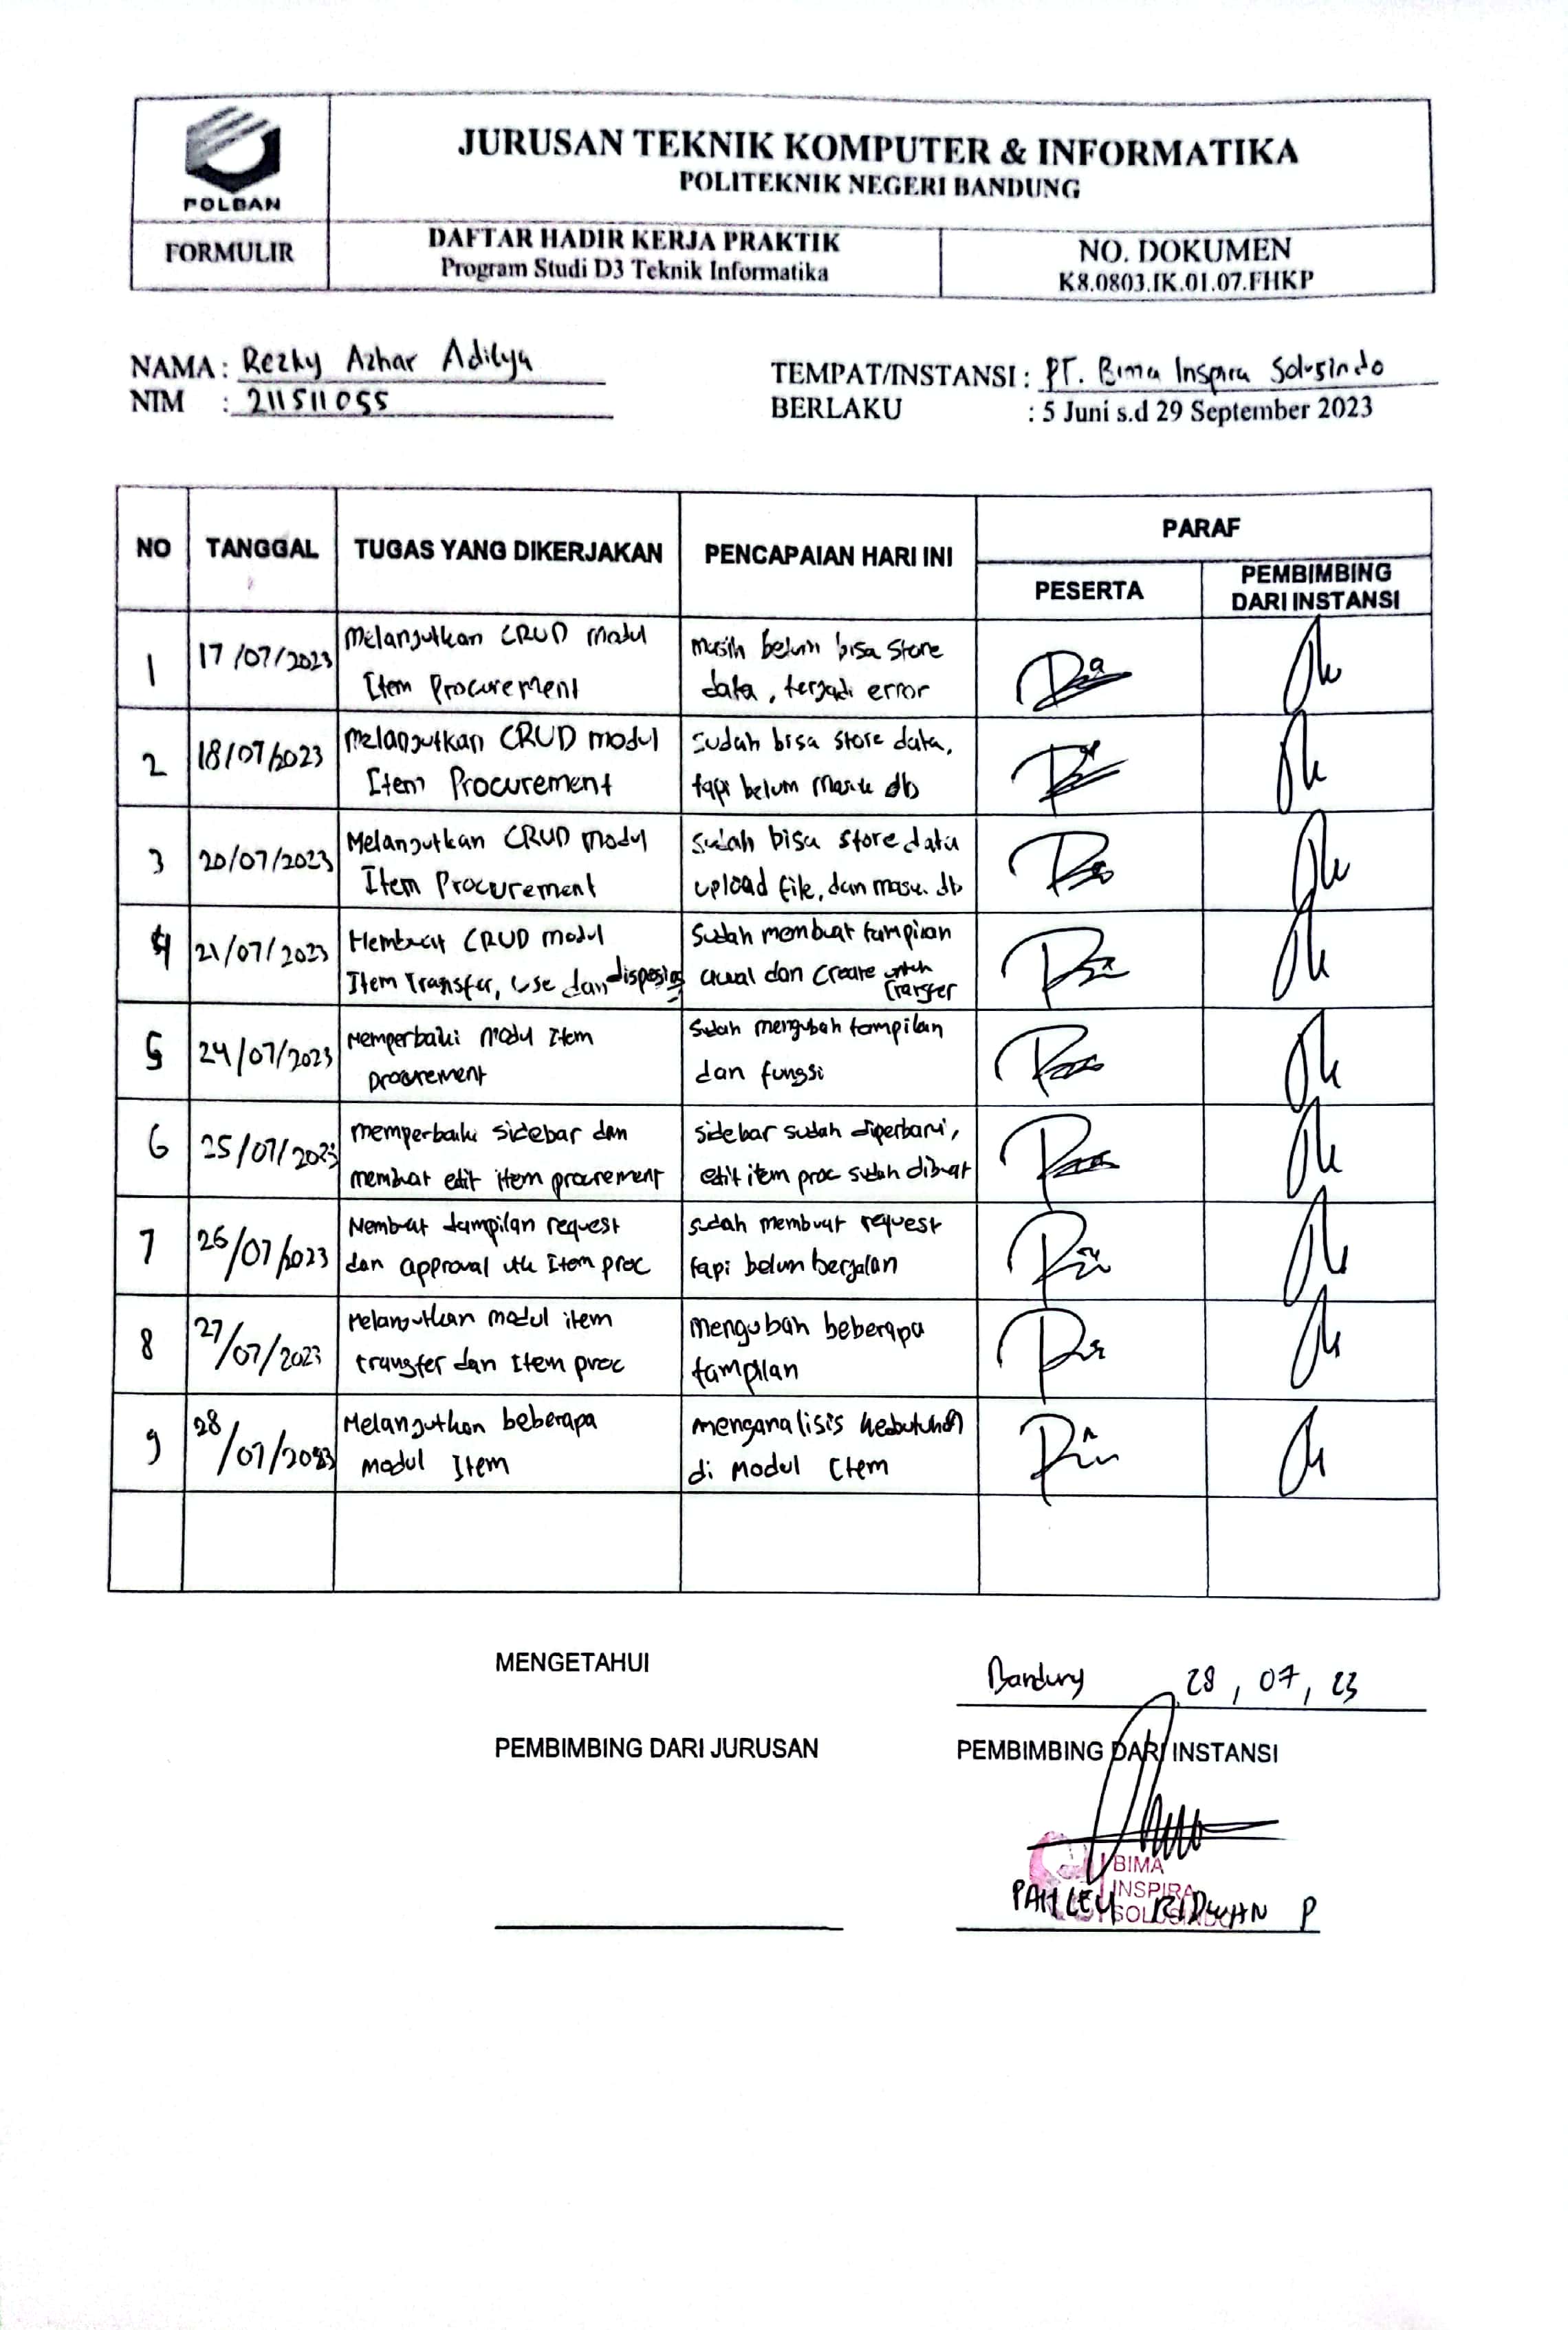 POLBAN
JURUSAN TEKNIK KOMPUTER & INFORMATIKA
POLITEKNIK NEGERI BANDUNG
FORMULIR
DAFTAR HADIR KERJA PRAKTIK
Program Studi D3 Teknik Informatika
NO. DOKUMEN
K8.0803.IK.01.07.FHKP
NAMA : Rezky Azhar Aditya
NIM : 211511055
TEMPAT/INSTANSI : PT. Bima Inspira Solusindo
BERLAKU : 5 Juni s.d 29 September 2023
NO TANGGAL TUGAS YANG DIKERJAKAN PENCAPAIAN HARI INI PARAF
PESERTA PEMBIMBING
DARI INSTANSI
1 17/07/2023 Melanjutkan CRUD modul
Item Procurement
masih belum bisa store
data, terjadi error
2 18/07/2023 Melanjutkan CRUD modul
Item Procurement
sudah bisa store data,
tapi belum masuk db
3 20/07/2023 Melanjutkan CRUD modul
Item Procurement
sudah bisa store data
upload file, dan masuk db
4 21/07/2023 Membuat CRUD modul
Item Transfer, use dan disposing
sudah membuat tampilan
awal dan create untuk
transfer
5 24/07/2023 Memperbaiki modul Item
procurement
sudah mengubah tampilan
dan fungsi
6 25/07/2023 memperbaiki sidebar dan
membuat edit item procurement
sidebar sudah diperbarui,
edit item proc sudah dibuat
7 26/07/2023 Membuat tampilan request
dan approval utk Item proc
sudah membuat request
tapi belum berjalan
8 27/07/2023 Melanjutkan modul item
transfer dan Item proc
mengubah beberapa
tampilan
9 28/07/2023 Melanjutkan beberapa
modul Item
menganalisis kebutuhan
di modul Item
MENGETAHUI
Bandung 28, 07, 23
PEMBIMBING DARI JURUSAN
PEMBIMBING DARI INSTANSI
BIMA
INSPIRA
SOLUSINDO
PAHLEVI RIDWAN P